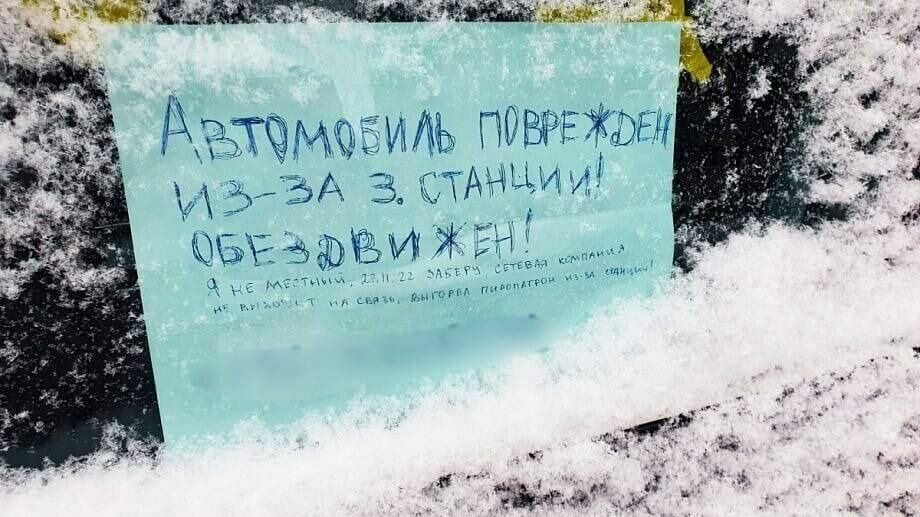 АВТОМОБИЛЬ ПОВРЕЖДЕН
ИЗ-ЗА З. СТАНЦИИ!
ОБЕЗДВИЖЕН!
Я НЕ МЕСТНЫЙ, 22.11.22 ЗАБЕРУ, СЕТЕВАЯ КОМПАНИЯ
НЕ ВЫХОДИТ НА СВЯЗЬ, ВЫГОРЕЛ ПИРОПАТРОН ИЗ-ЗА СТАНЦИИ!